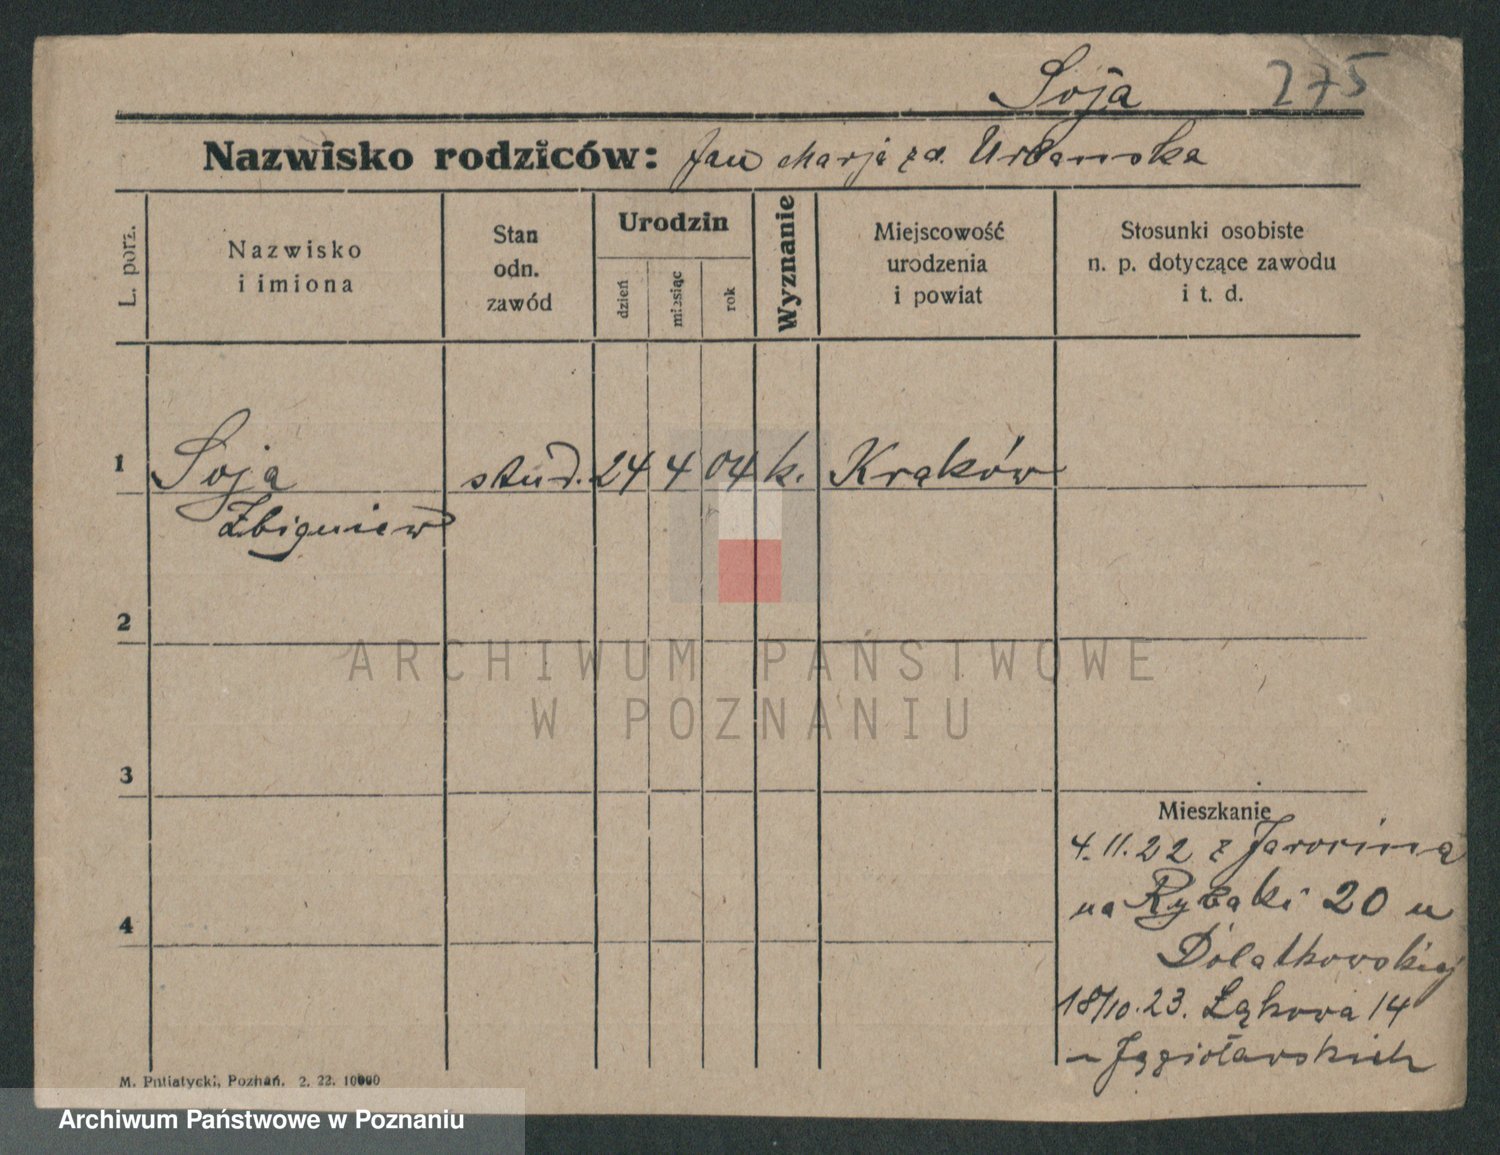 Soja 275
Nazwisko rodziców: Jan Marja zd. Urbańska
L. porz.
Nazwisko
i imiona
Stan
odn.
zawód
Urodzin
dzień
miesiąc
rok
Wyznanie
Miejscowość
urodzenia
i powiat
Stosunki osobiste
n. p. dotyczące zawodu
i t. d.
1 Soja stud. 24 4 04 k. Kraków
Zbigniew
2
ARCHIWUM PAŃSTWOWE
W POZNANIU
3
Mieszkanie
4. 11. 22 z Jarocina
na Rybaki 20 u
4
Dolatkowskiej
18/10. 23. Łąkowa 14
M. Putiatycki, Poznań. 2. 22. 10000
Archiwum Państwowe w Poznaniu